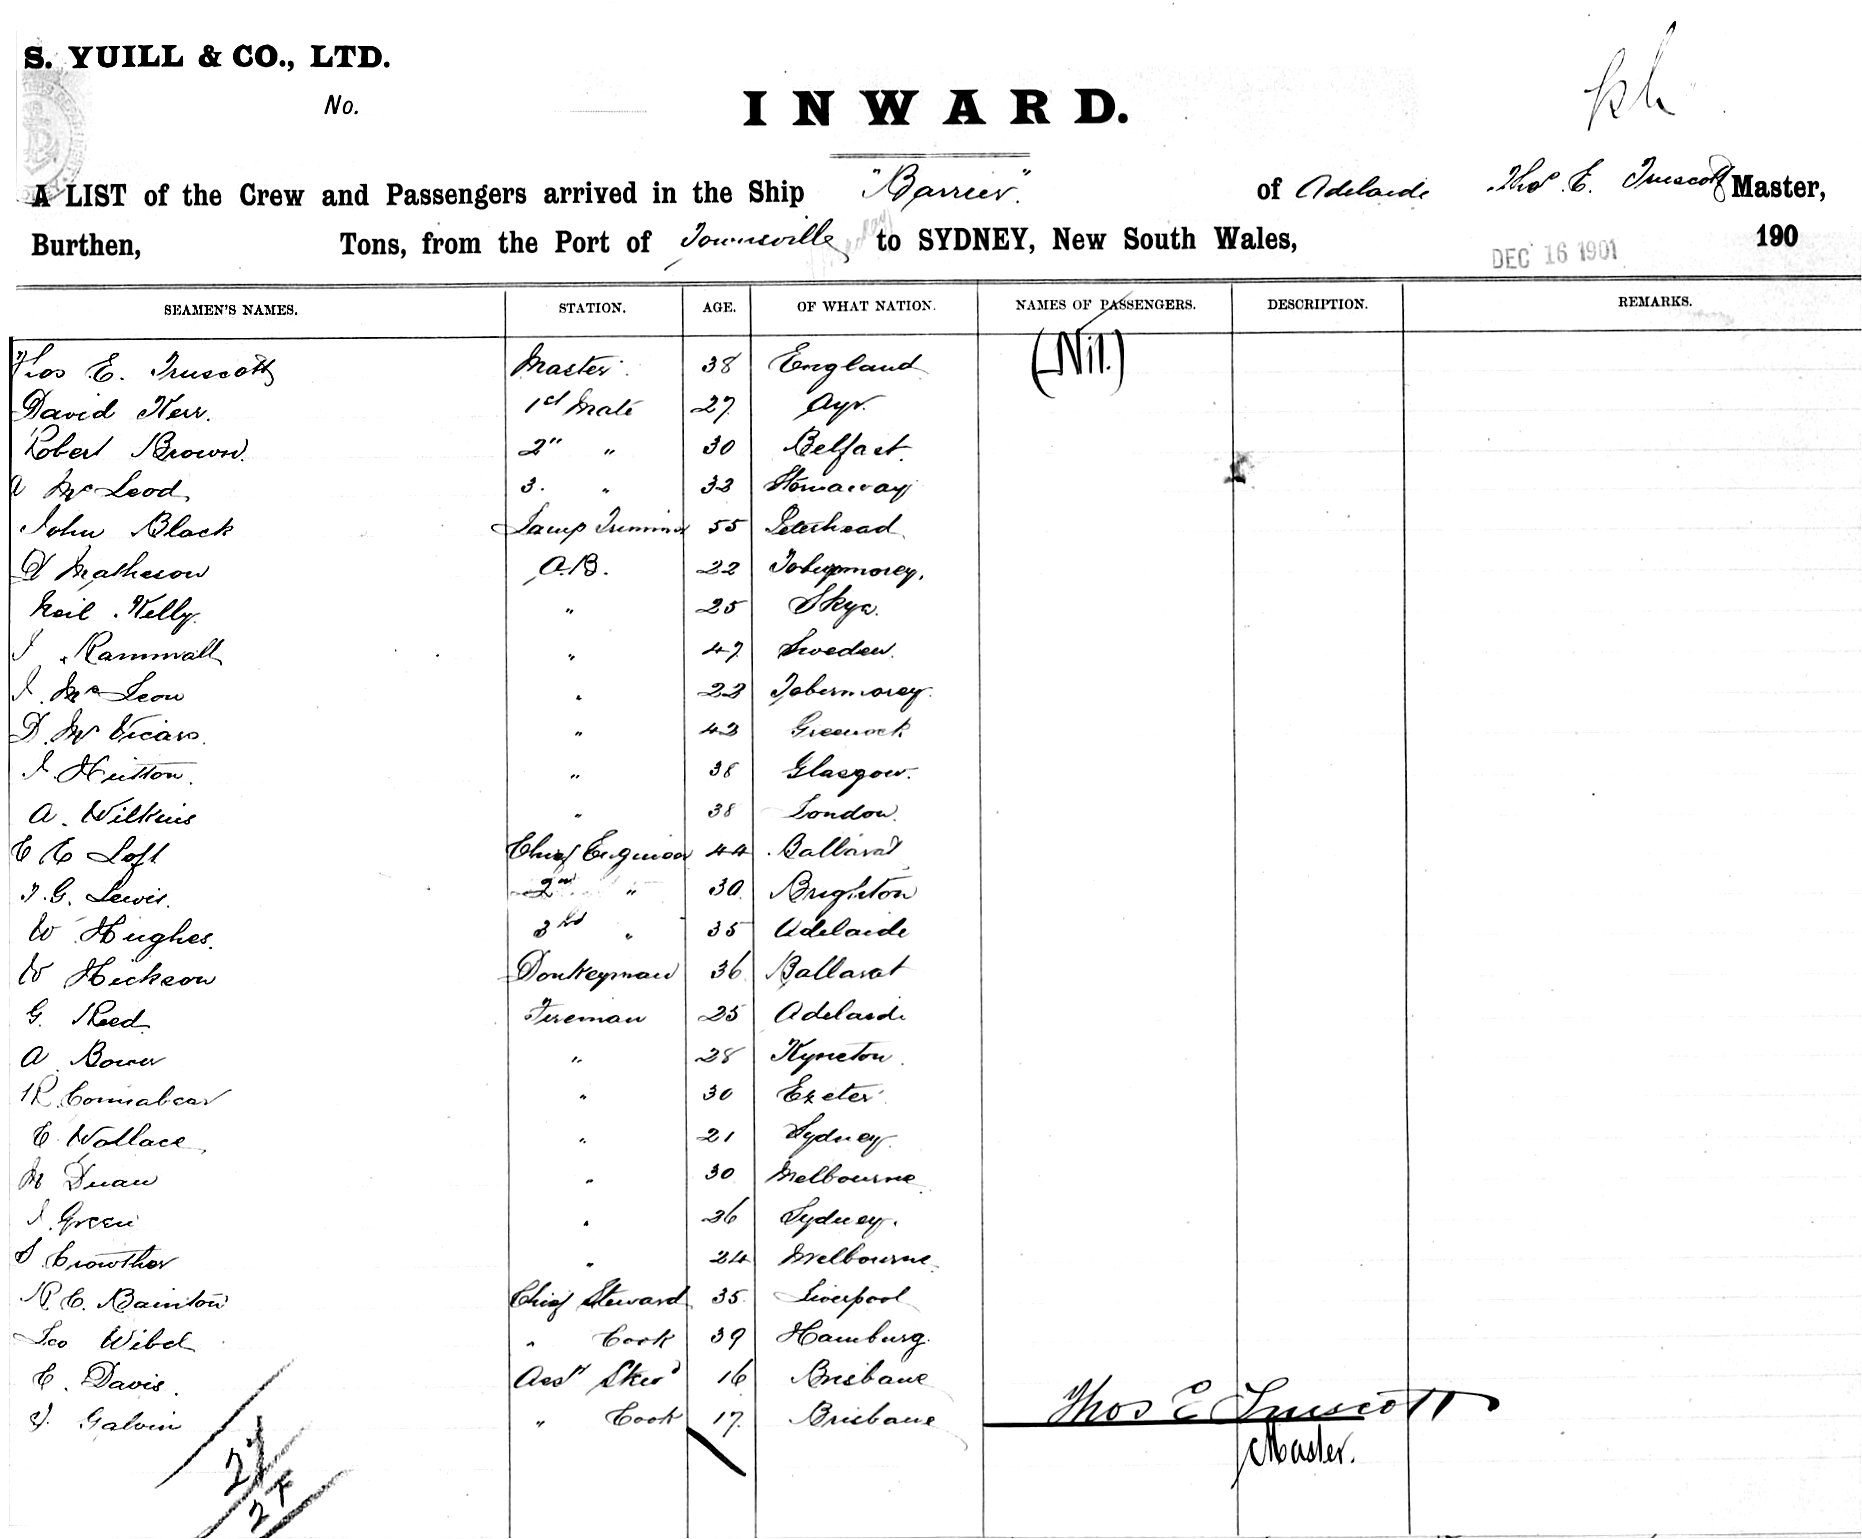 S. YUILL & CO., LTD.
No.
INWARD.
A LIST of the Crew and Passengers arrived in the Ship "Barrier" of Adelaide Thos E. Truscott Master,
Burthen, Tons, from the Port of Townsville to SYDNEY, New South Wales, DEC 16 1901 190
SEAMEN'S NAMES. STATION. AGE. OF WHAT NATION. NAMES OF PASSENGERS. DESCRIPTION. REMARKS.
Thos E. Truscott Master 38 England (Nil.)
David Kerr. 1st Mate 27 Ayr.
Robert Brown. 2" " 30 Belfast.
A McLeod 3. " 33 Stornaway
John Black Lamp Trimmer 55 Peterhead
D Matheson A.B. 22 Tobermorey.
Neil Kelly. " 25 Skye.
J Rammvall " 47 Sweden.
J. Mc Leon " 23 Tobermorey.
D. Mc Vicars. " 43 Greenock
J. Hutton. " 38 Glasgow.
A. Wilkins " 38 London.
E E Loft Chief Engineer 44 Ballarat
T. G. Lewis. 2nd " 30 Brighton
W Hughes. 3rd " 35 Adelaide
W Hickson Donkeyman 36 Ballarat
G. Reed Fireman 25 Adelaide
A Bower " 28 Kyneton.
R. Connabear " 30 Exeter
E. Wallace " 21 Sydney.
M Duan " 30 Melbourne
J. Green " 26 Sydney.
S Crowther " 24 Melbourne
R. C. Bainton Chief Steward 35 Liverpool
Leo Wibel " Cook 39 Hamburg.
E. Davis. Asst Stewd 16 Brisbane
J. Galvin " Cook 17. Brisbane
Thos E Truscott
Master.
27
27